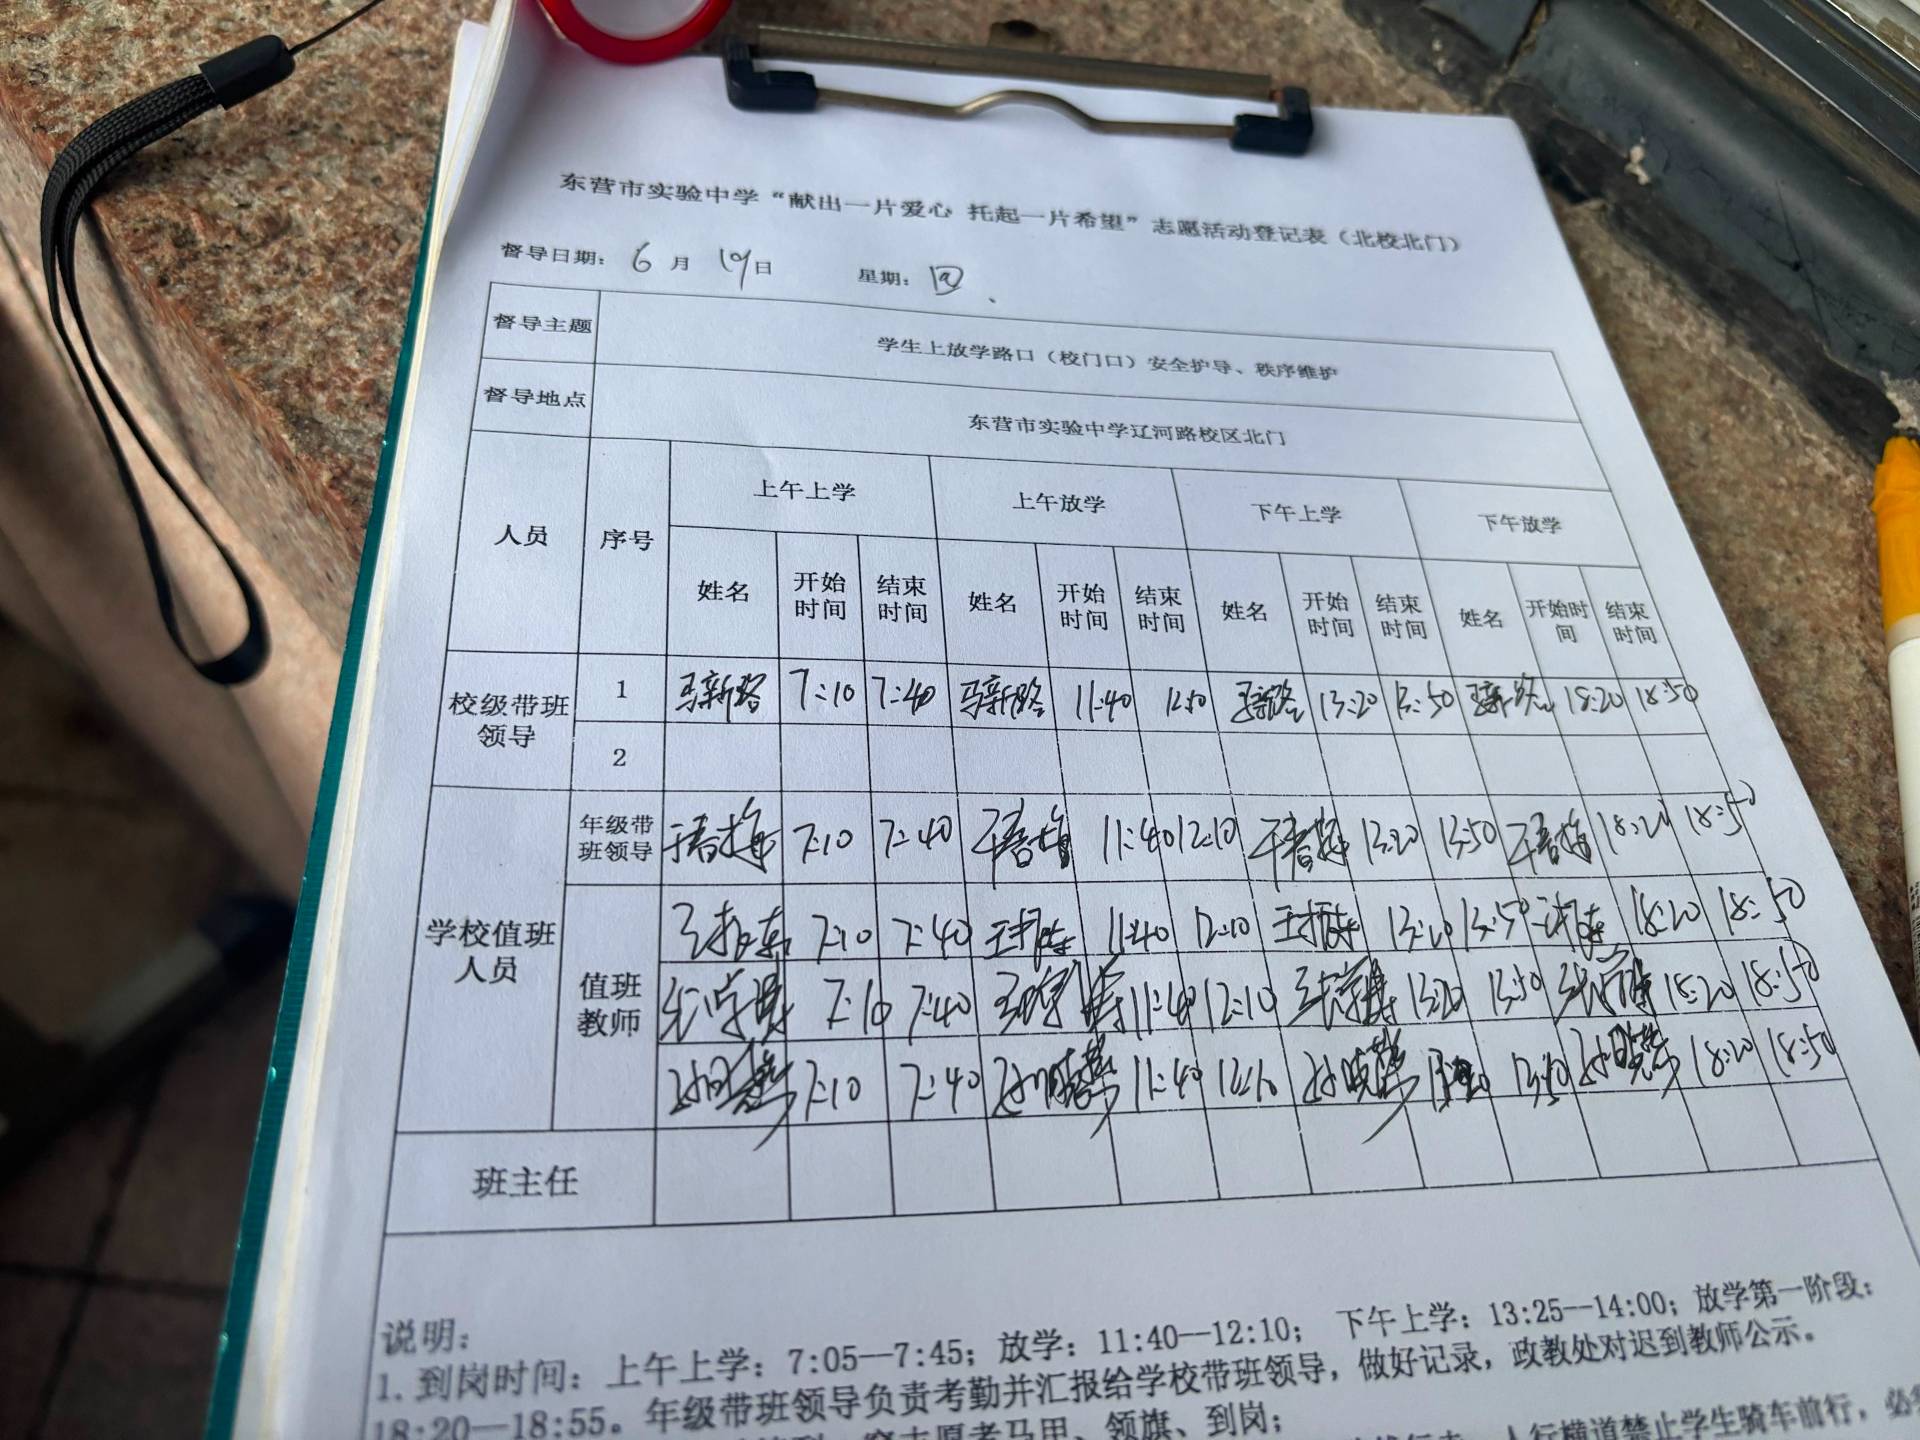 东营市实验中学“献出一片爱心 托起一片希望”志愿活动登记表（北校北门）
督导日期：6月19日 星期：四
督导主题 学生上放学路口（校门口）安全护导、秩序维护
督导地点 东营市实验中学辽河路校区北门
人员 序号 上午上学 上午放学 下午上学 下午放学
姓名 开始时间 结束时间 姓名 开始时间 结束时间 姓名 开始时间 结束时间 姓名 开始时间 结束时间
校级带班领导 1 马新路 7:10 7:40 马新路 11:40 马新路 13:20 13:50 马新路 18:20 18:50
2
学校值班人员 年级带班领导 于春梅 7:10 7:40 于春梅 11:40 12:10 于春梅 13:20 13:50 于春梅 18:20 18:50
值班教师 7:10 7:40 11:40 12:10 13:20 13:50 18:20 18:50
7:10 7:40 11:40 12:10 13:20 13:50 18:20 18:50
孙晓燕 7:10 7:40 孙晓燕 11:40 12:10 孙晓燕 13:50 孙晓燕 18:20 18:50
班主任
说明：
1. 到岗时间：上午上学：7:05—7:45；放学：11:40—12:10； 下午上学：13:25—14:00；放学第一阶段：
18:20—18:55。年级带班领导负责考勤并汇报给学校带班领导，做好记录，政教处对迟到教师公示。
志愿者马甲、领旗、到岗；
人行横道禁止学生骑车前行，必